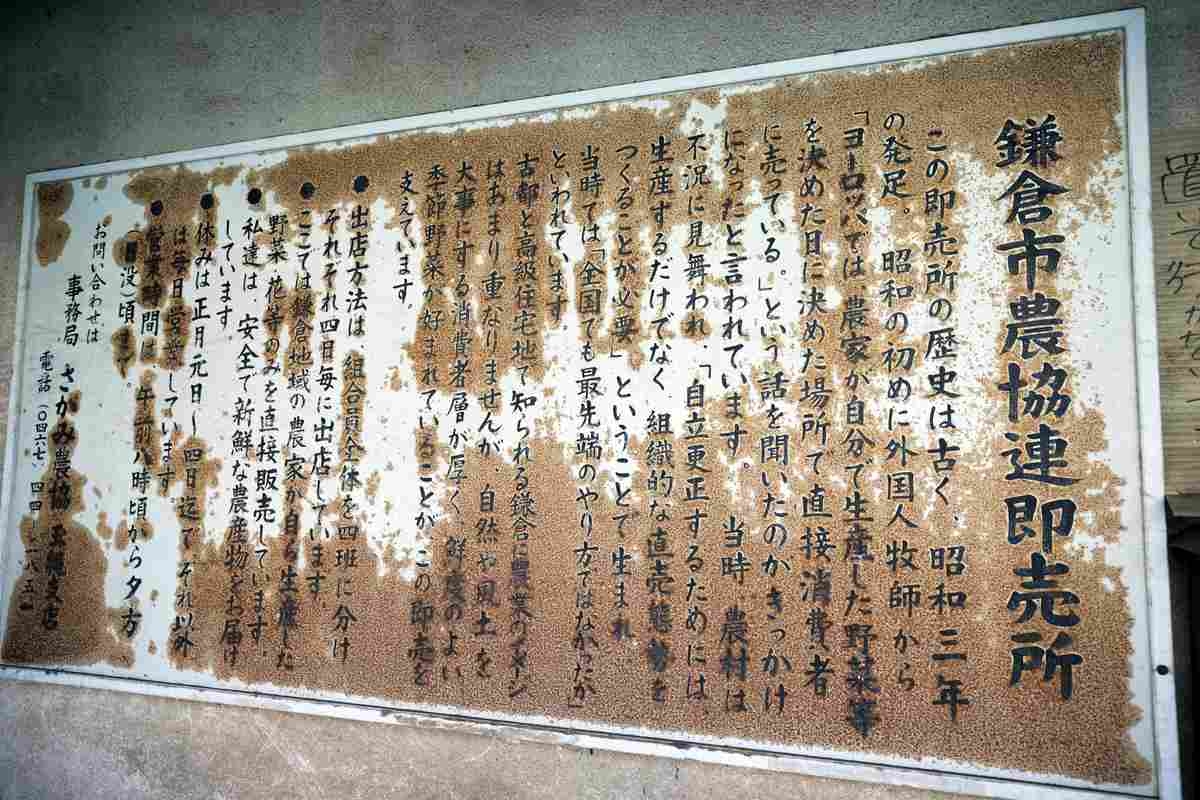 鎌倉市農協連即売所
この即売所の歴史は古く、昭和三年
の発足。昭和の初めに外国人牧師から
「ヨーロッパでは、農家が自分で生産した野菜等
を決めた日に決めた場所で直接消費者
に売っている。」という話を聞いたのがきっかけ
になったと言われています。当時、農村は
不況に見舞われ、「自立更正するためには、
生産するだけでなく、組織的な直売態勢を
つくることが必要」ということで生まれ、
当時では「全国でも最先端のやり方ではなかったか」
といわれています。
古都と高級住宅地で知られる鎌倉に農業のイメージ
はあまり重なりませんが、自然や風土を
大事にする消費者層が厚く、鮮度のよい
季節野菜が好まれていることが、この即売を
支えています。
●出店方法は、組合員全体を四班に分け
それぞれ四日毎に出店しています。
●ここでは鎌倉地域の農家が自ら生産した
野菜、花等のみを直接販売しています。
●私達は、安全で新鮮な農産物をお届け
しています。
●休みは正月元日〜四日迄で、それ以外
は毎日営業しています。
●営業時間は、午前八時頃から夕方
(日没)頃まで。
お問い合わせは
事務局 さがみ農協 支店
電話(〇四六七)四四-
置